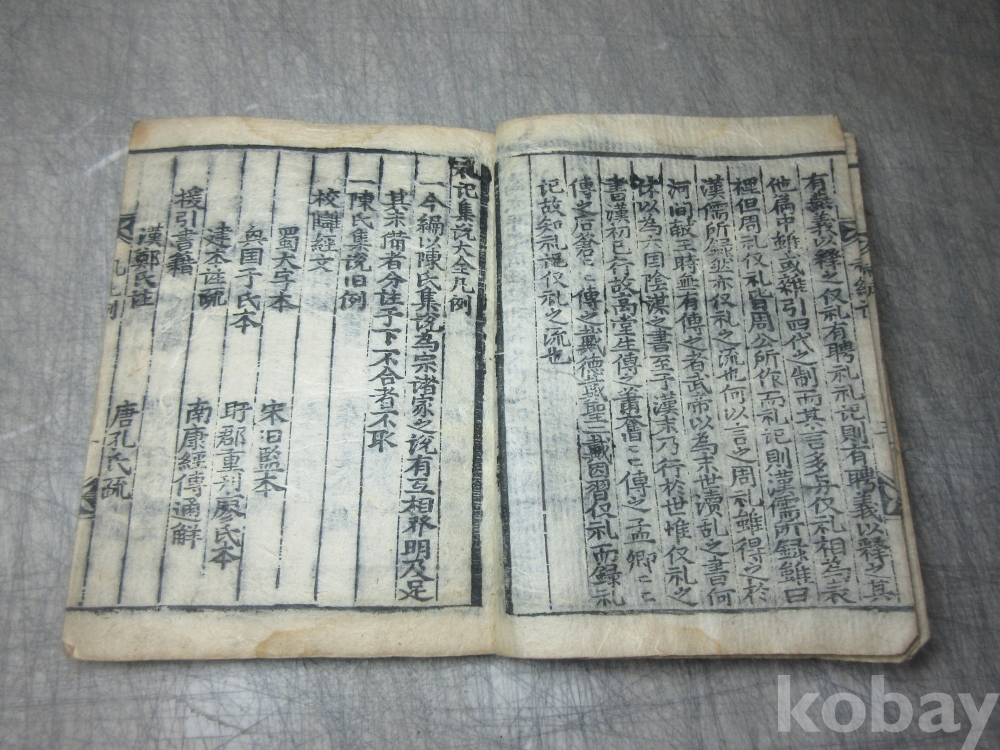 有無義以釋之仅礼有聘礼礼記則有聘義以釋之其
他扁中虽或雜引四代之制而其言多与仅礼相為表
裡但周礼仅礼皆周公所作而礼記則漢儒所録雖曰
漢儒所録然亦仅礼之流也何以言之周礼雖得之於
河間献王時無有傳之者武帝以為末世瀆乱之書何
休以為六囯陰謀之書至于漢末乃行於世惟仅礼之
書漢初已行故高堂生傳之蕭奮〻傳之孟卿〻
傳之后倉〻傳之戴德戴聖二戴因習仅礼而録礼
記故知礼記仅礼之流也
礼記集說大全凡例
一今編以陳氏集說為宗諸家之說有互相發明及足
其未備者分注于下不合者不取
一陳氏集說旧例
校讎經文
蜀大字本 宋旧監本
興囯于氏本 盱郡重刋廖氏本
建本注疏 南康經傳通解
援引書籍
漢鄭氏註 唐孔氏疏
凡例
kobay